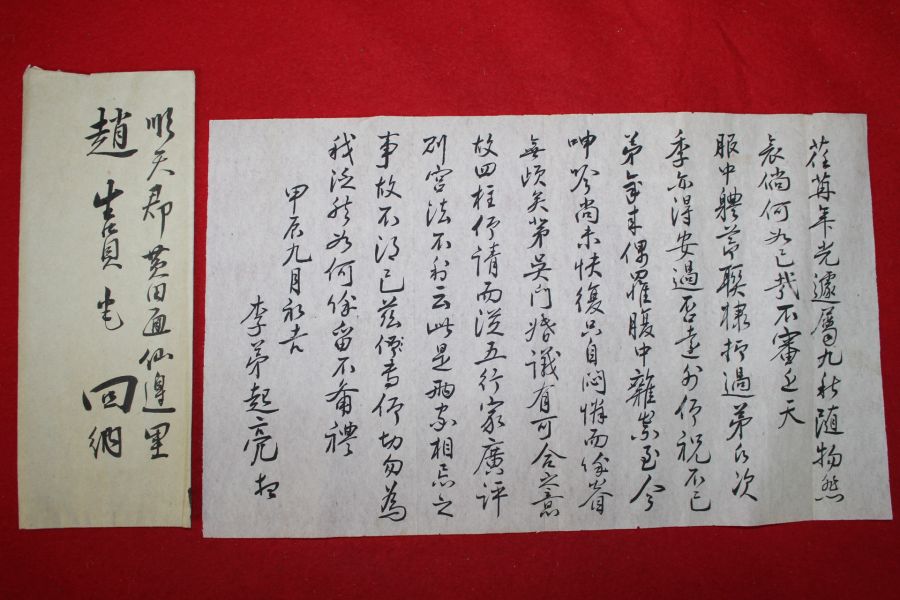 荏苒年光遽屬九秋隨物態
哀倘何如已哉不審辰天
服中體萬聯棣折過弟氏次
季亦得安過否遠外仰祝不已
弟年來偶罹腹中雜祟至今
呻吟尚未快復只自悶憐而餘眷
無頉矣第吳門婚議有可合之意
故四柱仰請而從五行家廣評
則宮法不利云此是兩家相忌之
事故不得已茲縷告仰切勿為
我泛然如何餘留不備禮
甲辰九月初吉
李弟起亮拜
順天郡黃田面仙邊里
趙 生員宅 回納